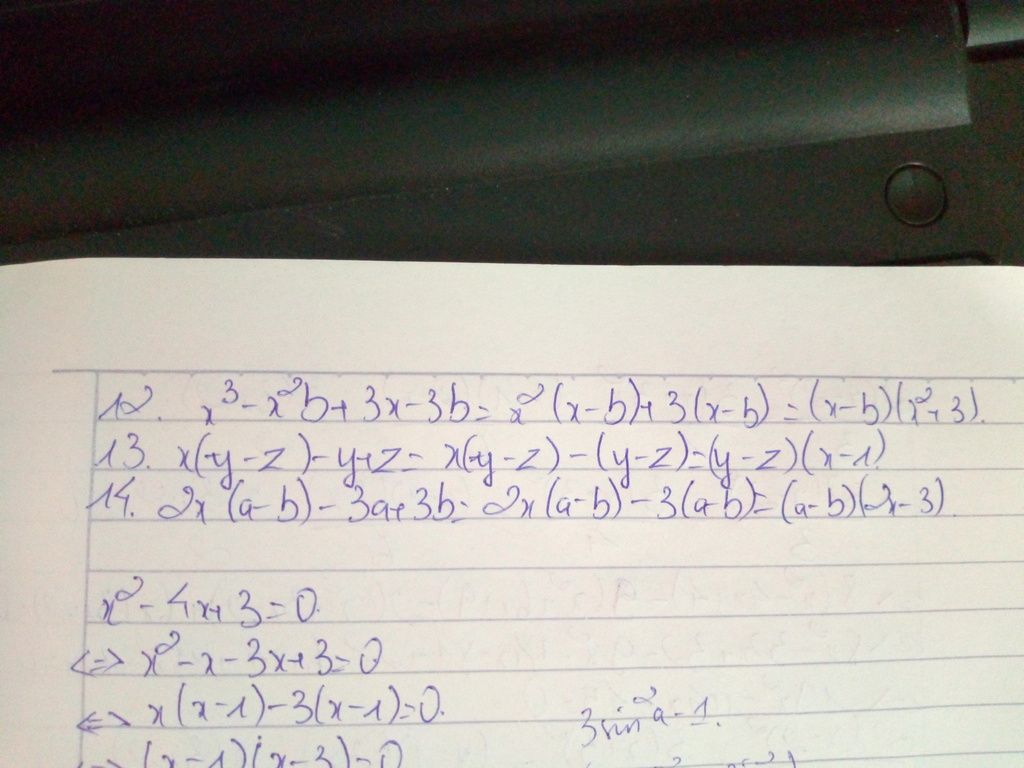 12. x³ - x²b + 3x - 3b = x² (x - b) + 3(x - b) = (x - b)(x² + 3).
13. x(y - z) - y + z = x(y - z) - (y - z) = (y - z)(x - 1)
14. 2x (a - b) - 3a + 3b = 2x (a - b) - 3(a - b) = (a - b)(2x - 3)
x² - 4x + 3 = 0.
<=> x² - x - 3x + 3 = 0
<=> x(x - 1) - 3(x - 1) = 0.
3 sin²a - 1.
=> (x - 1)(x - 3) = 0